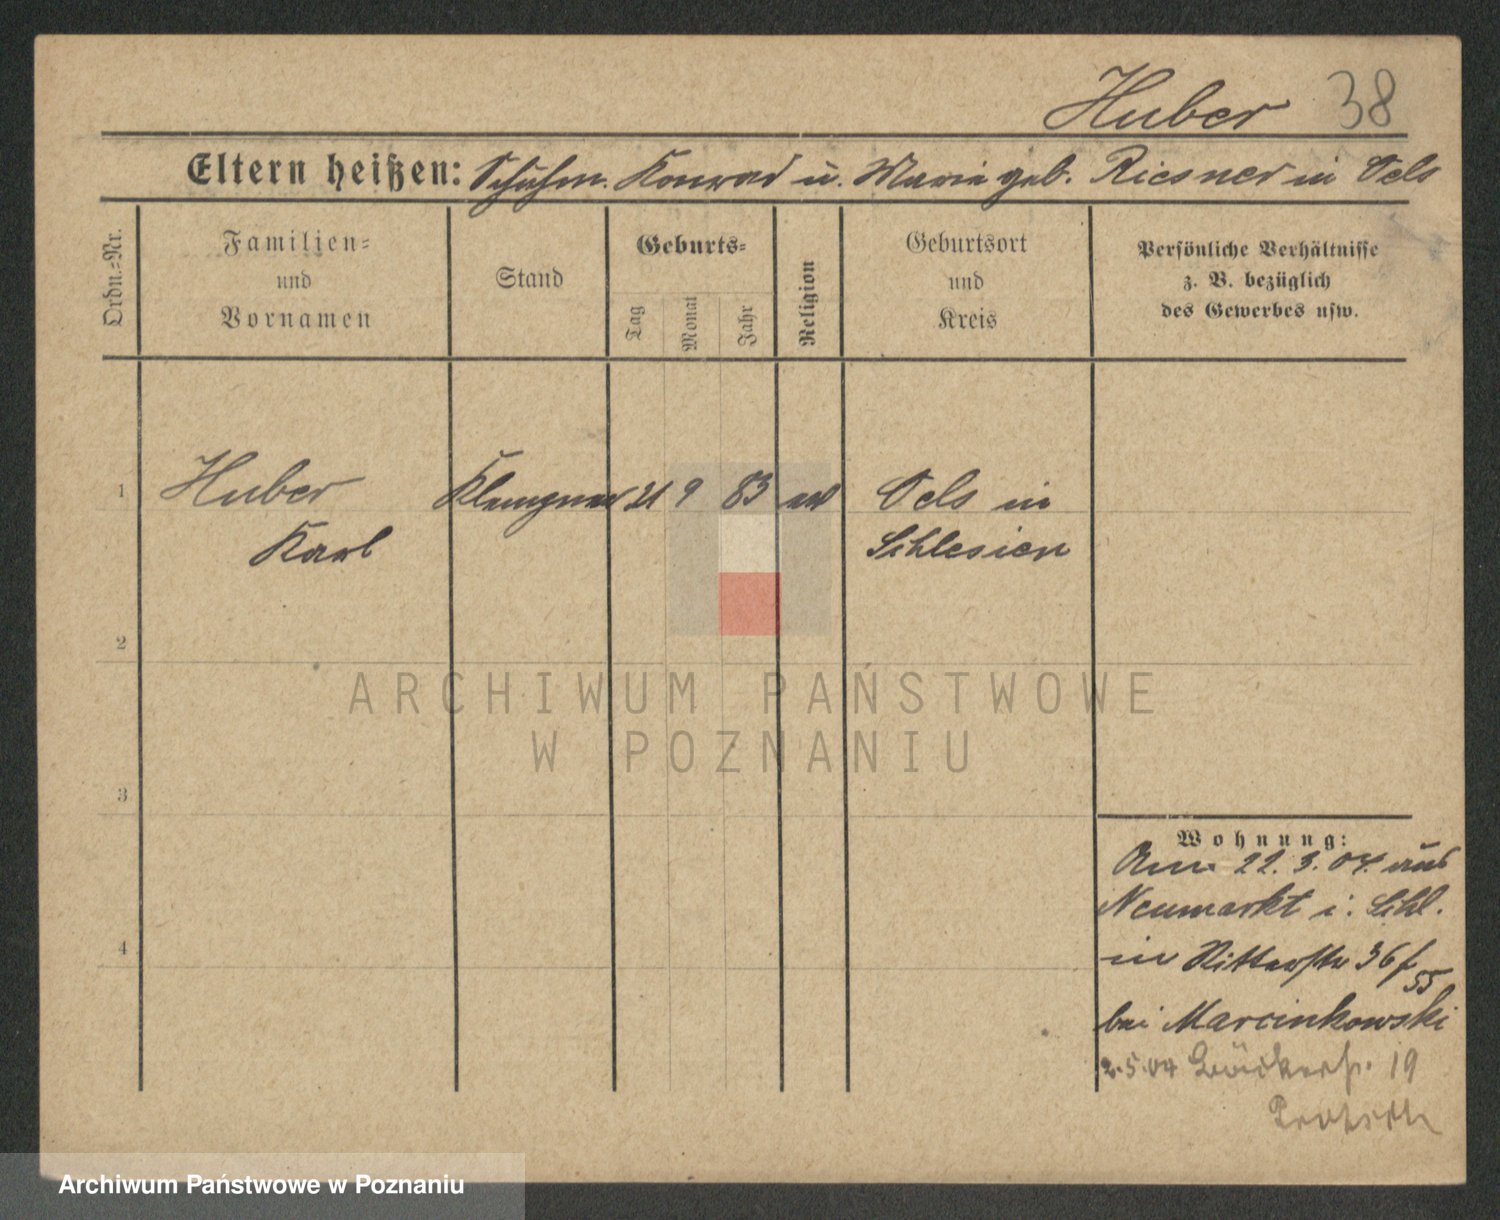 Huber 38
Eltern heißen: Schuhm. Konrad u. Marie geb. Riesner in Oels
Ordn.=Nr.
Familien=
und
Vornamen
Stand
Geburts=
Tag
Monat
Jahr
Religion
Geburtsort
und
Kreis
Persönliche Verhältnisse
z. B. bezüglich
des Gewerbes usw.
1 Huber Klempner 21 9 83 ev Oels in
Karl Schlesien
2
3
4
Wohnung:
Am 22.3.04. aus
Neumarkt i. Schl.
in Ritterstr 36
55
bei Marcinkowski
2.5.04 Bäckerstr. 19
ARCHIWUM PAŃSTWOWE
W POZNANIU
Archiwum Państwowe w Poznaniu